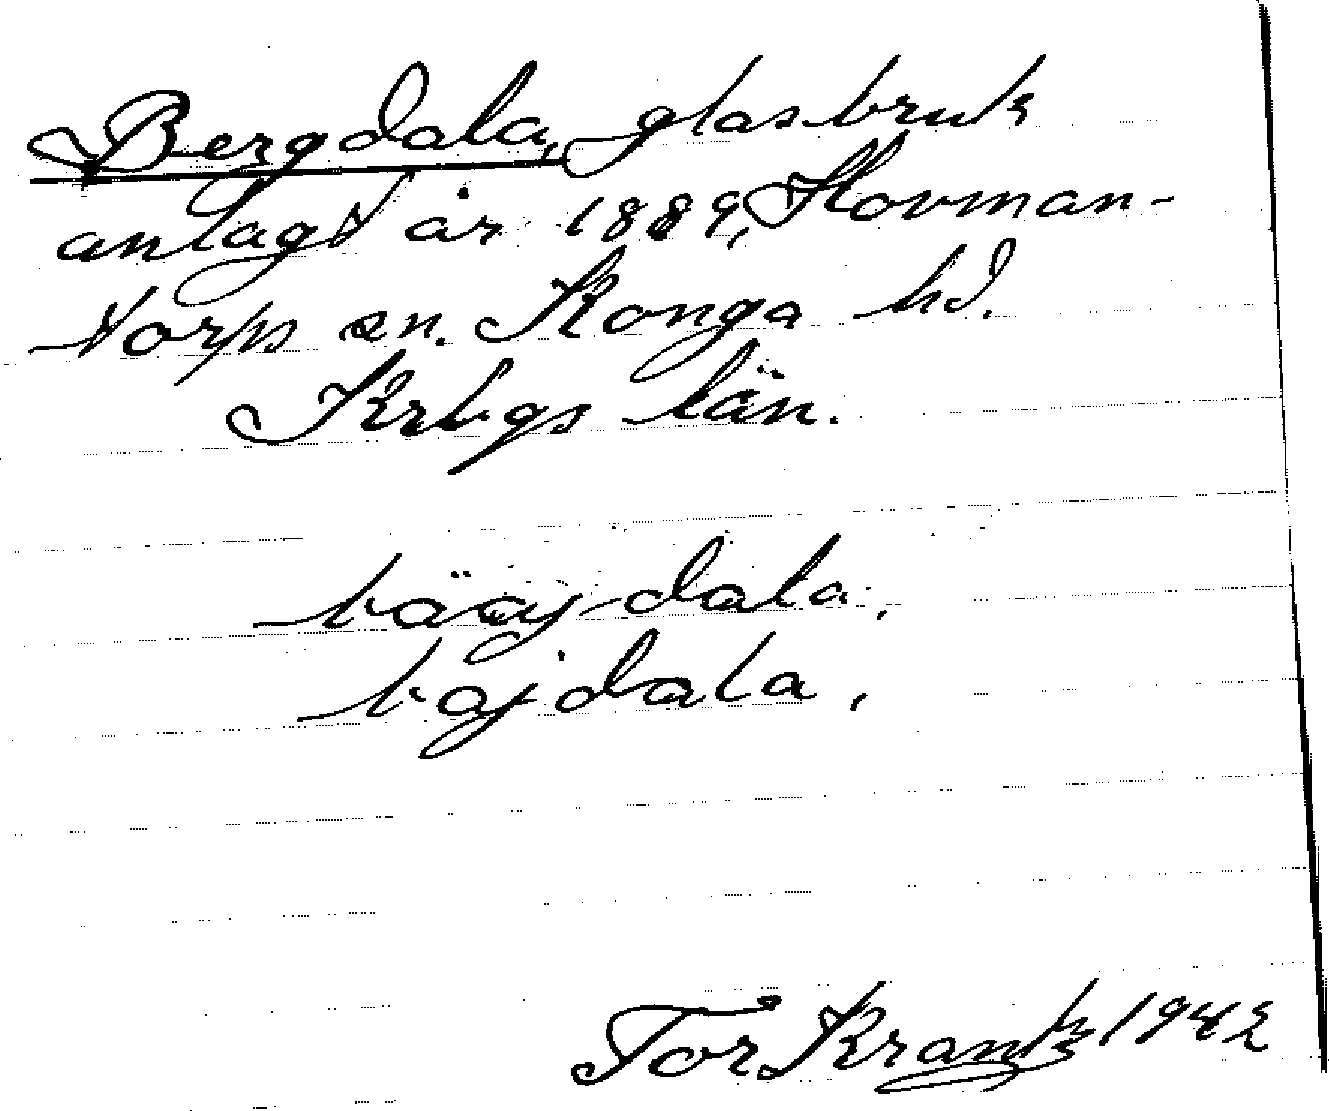 Bergdala, glasbruk
anlagt år 1889, Hovman-
torps sn. Konga hd.
Krbgs län.
bääj-dala,
bajdala,
Tor Krantz 1942